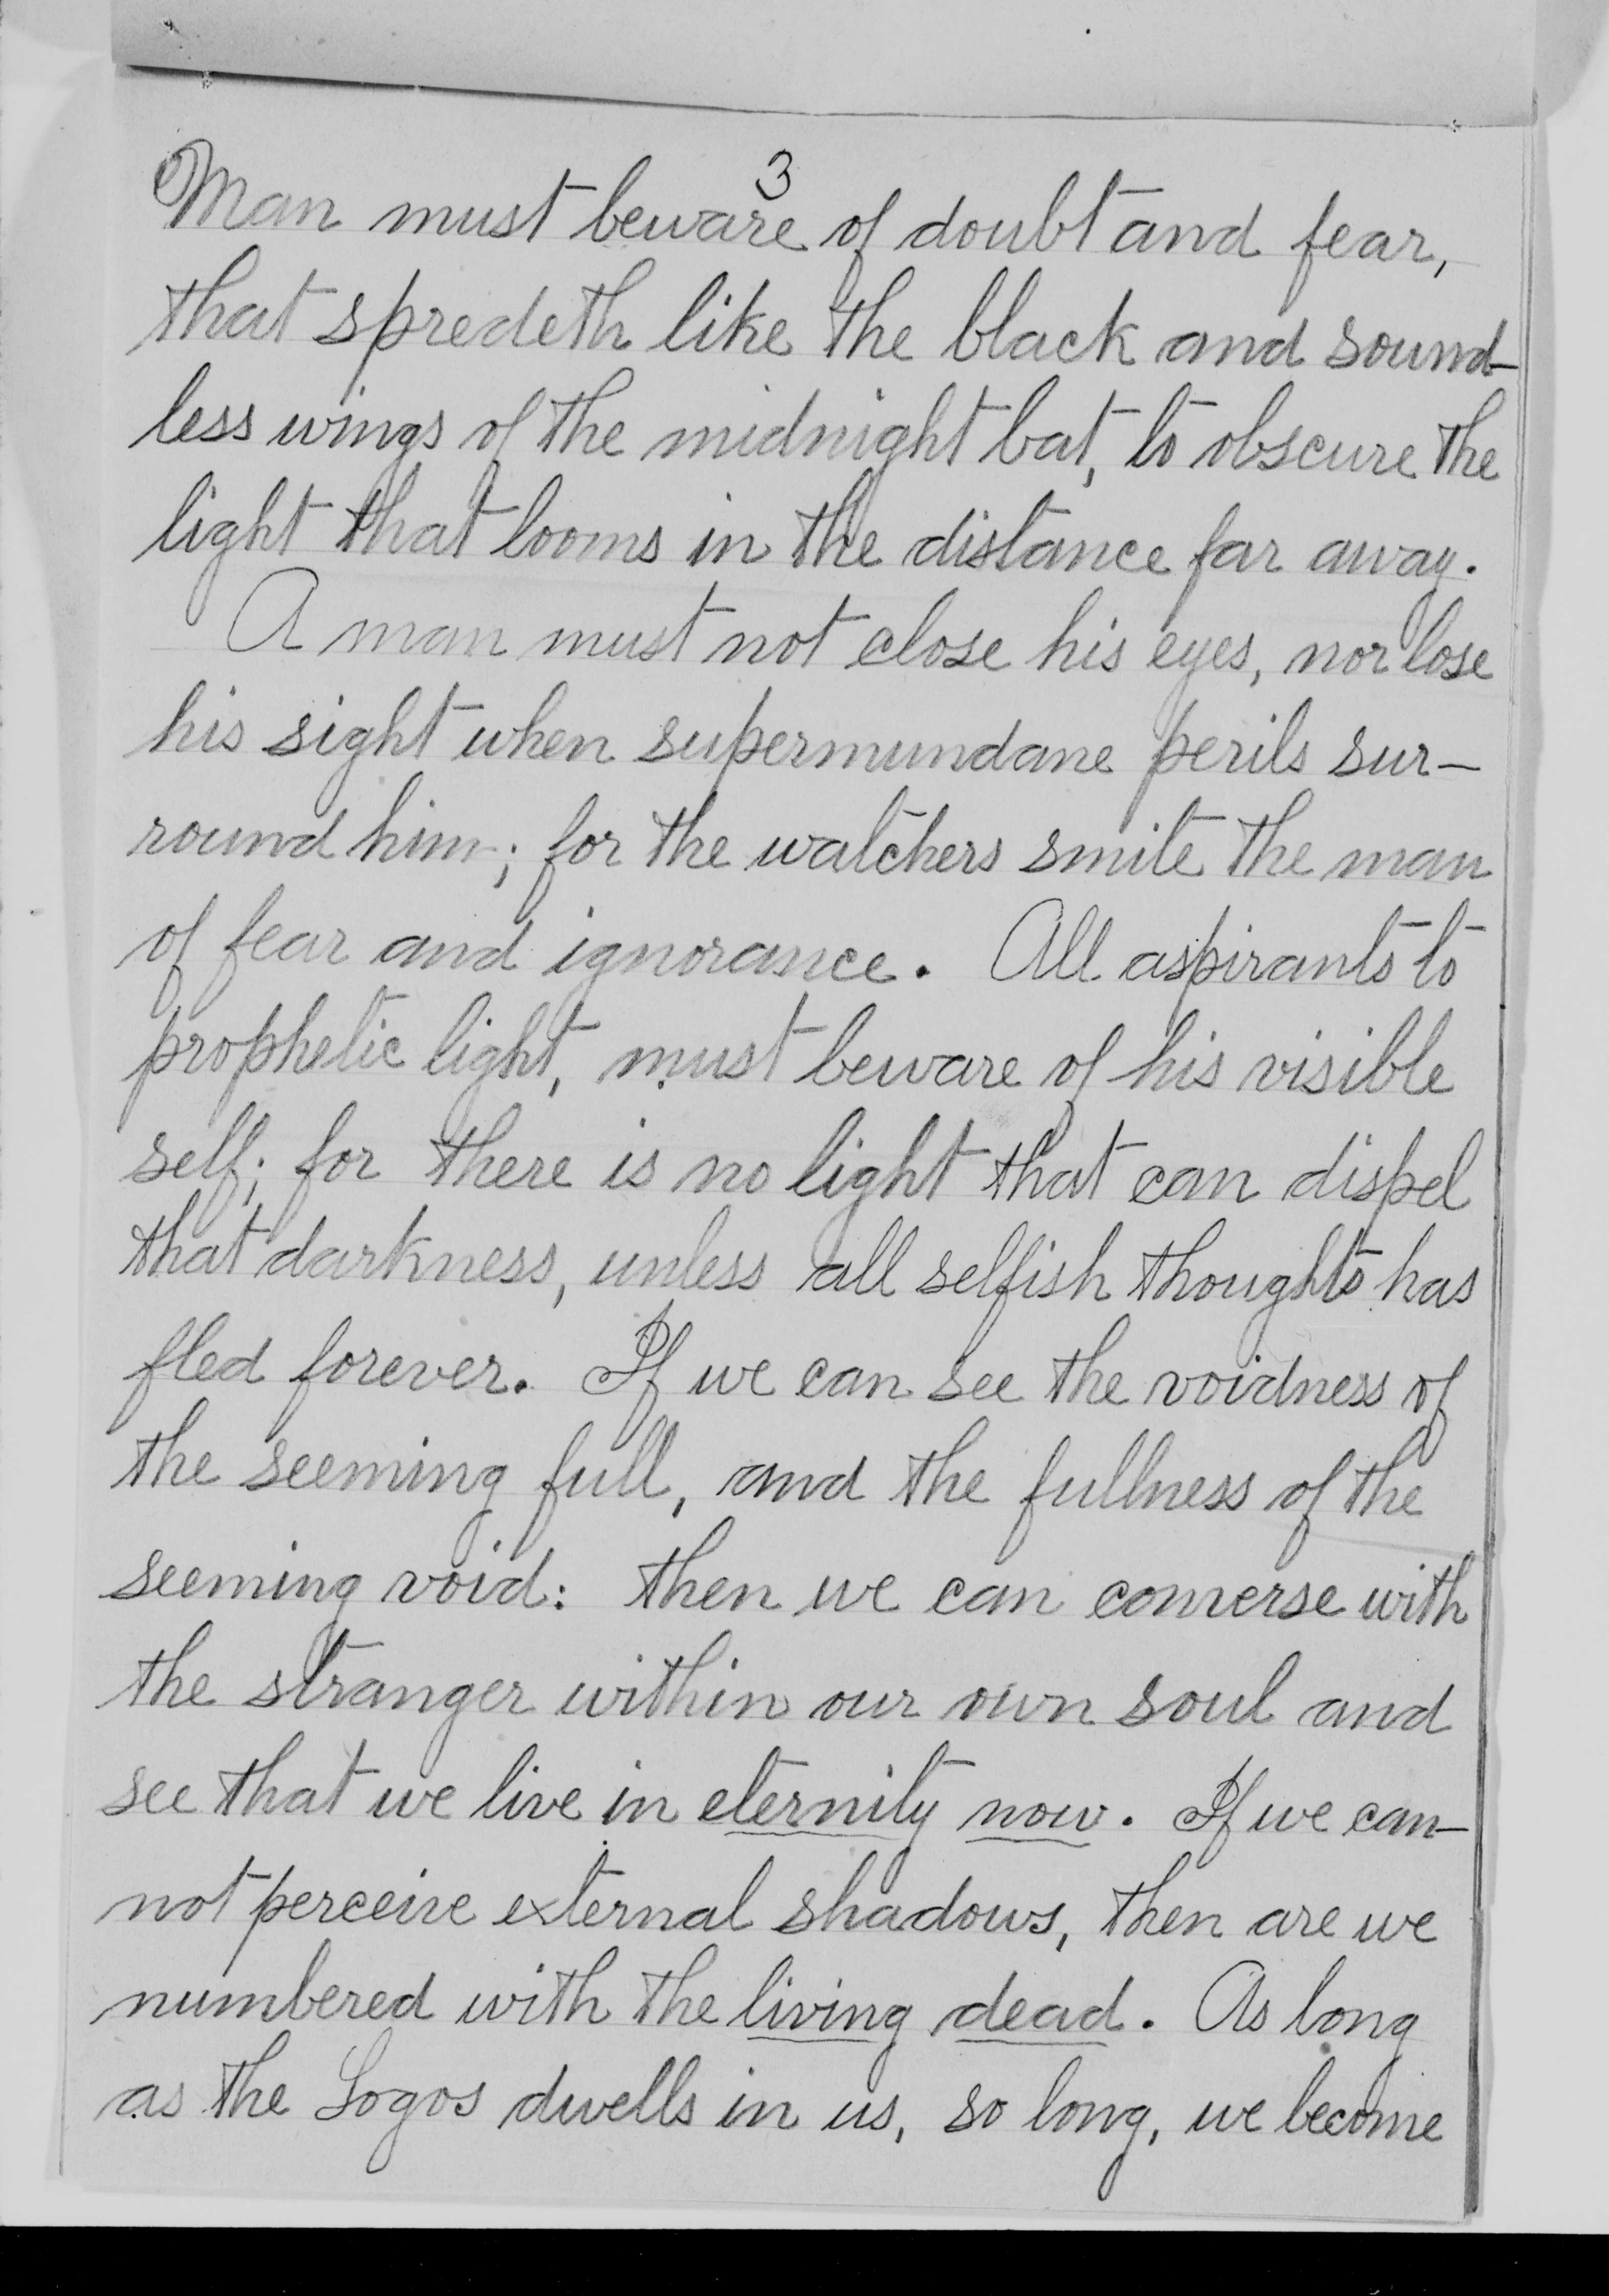 3
Man must beware of doubt and fear,
that spredeth like the black and sound-
less wings of the midnight bat, to obscure the
light that looms in the distance far away.
A man must not close his eyes, nor lose
his sight when supermundane perils sur-
round him; for the watchers smite the man
of fear and ignorance. All aspirants to
prophetic light, must beware of his visible
self; for there is no light that can dispel
that darkness, unless all selfish thoughts has
fled forever. If we can see the voidness of
the seeming full, and the fullness of the
seeming void: then we can converse with
the stranger within our own soul and
see that we live in eternity now. If we can-
not perceive external shadows, then are we
numbered with the living dead. As long
as the Logos dwells in us, so long, we become